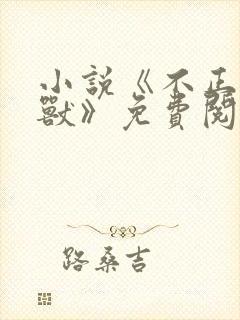 小說《不正
獸》免費閱
路桑吉